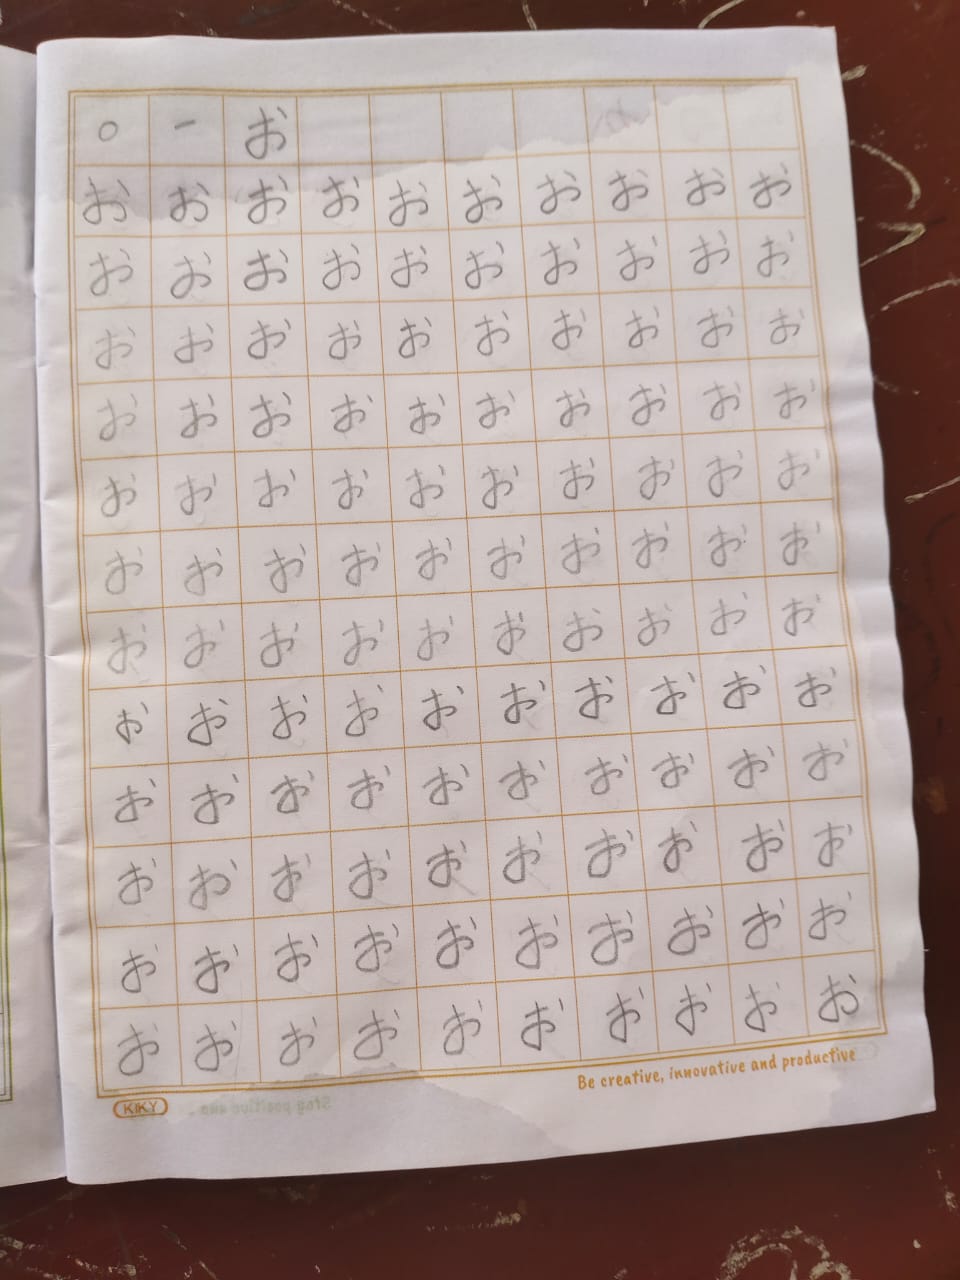 o - お
お お お お お お お お お お
お お お お お お お お お お
お お お お お お お お お お
お お お お お お お お お お
お お お お お お お お お お
お お お お お お お お お お
お お お お お お お お お お
お お お お お お お お お お
お お お お お お お お お お
お お お お お お お お お お
お お お お お お お お お お
お お お お お お お お お お
Be creative, innovative and productive
KIKY